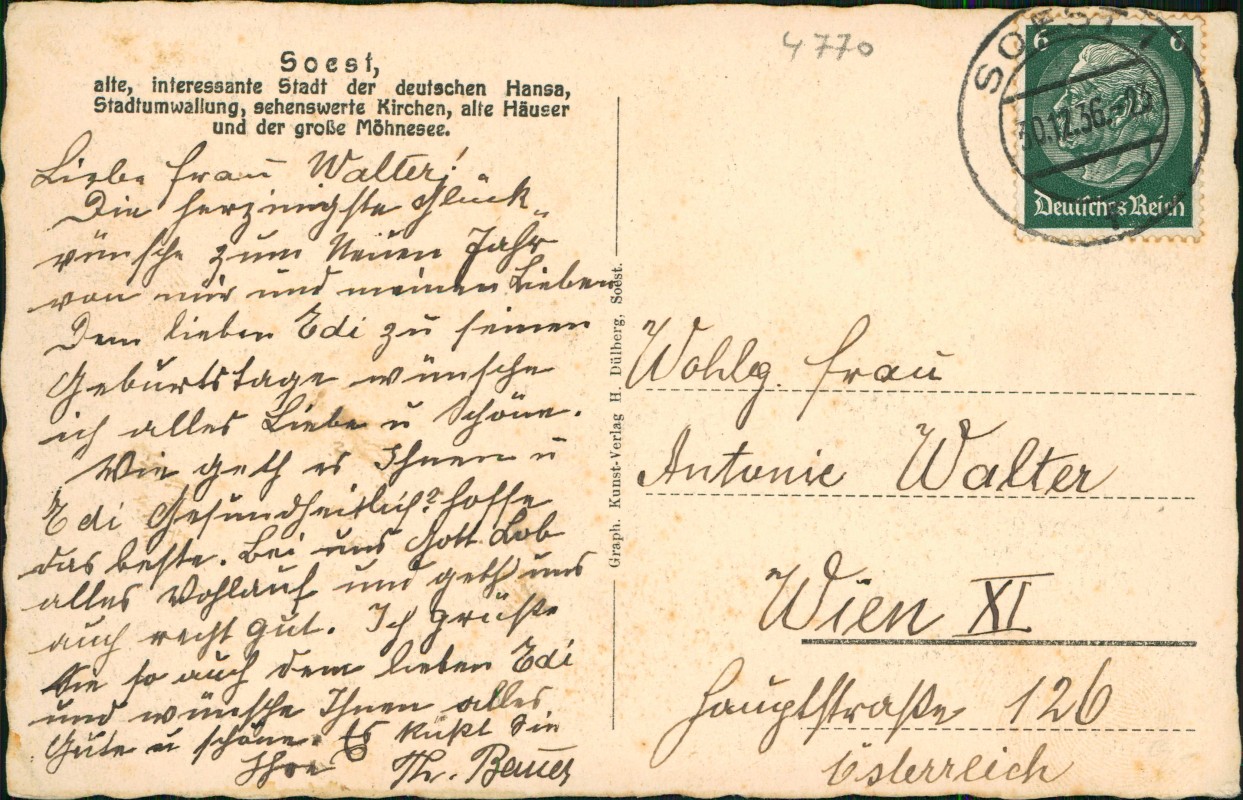 Soest,
alte, interessante Stadt der deutschen Hansa,
Stadtumwallung, sehenswerte Kirchen, alte Häuser
und der große Möhnesee.
Liebe Frau Walter!
Die herzinnigste Glück-
wünsche zum Neuen Jahr
von mir und meinen Lieben
Dem lieben Edi zu seinem
Geburtstage wünsche
ich alles Liebe u Schöne.
Wie geth es Ihnen u
Edi Gesundheitlich? hoffe
das beste. Bei uns Gott Lob
alles Wohlauf und geth uns
auch recht gut. Ich grüße
Sie so auch dem lieben Edi
und wünsche Ihnen alles
Gute u schöne. Es küßt Sie
Ihre Th. Bauer
Graph. Kunst-Verlag H. Dülberg, Soest.
4770
SOEST 1
30.12.36.
6 6
Deutsches Reich
Wohlg. Frau
Antonie Walter
Wien XI
Hauptstraße 126
Österreich